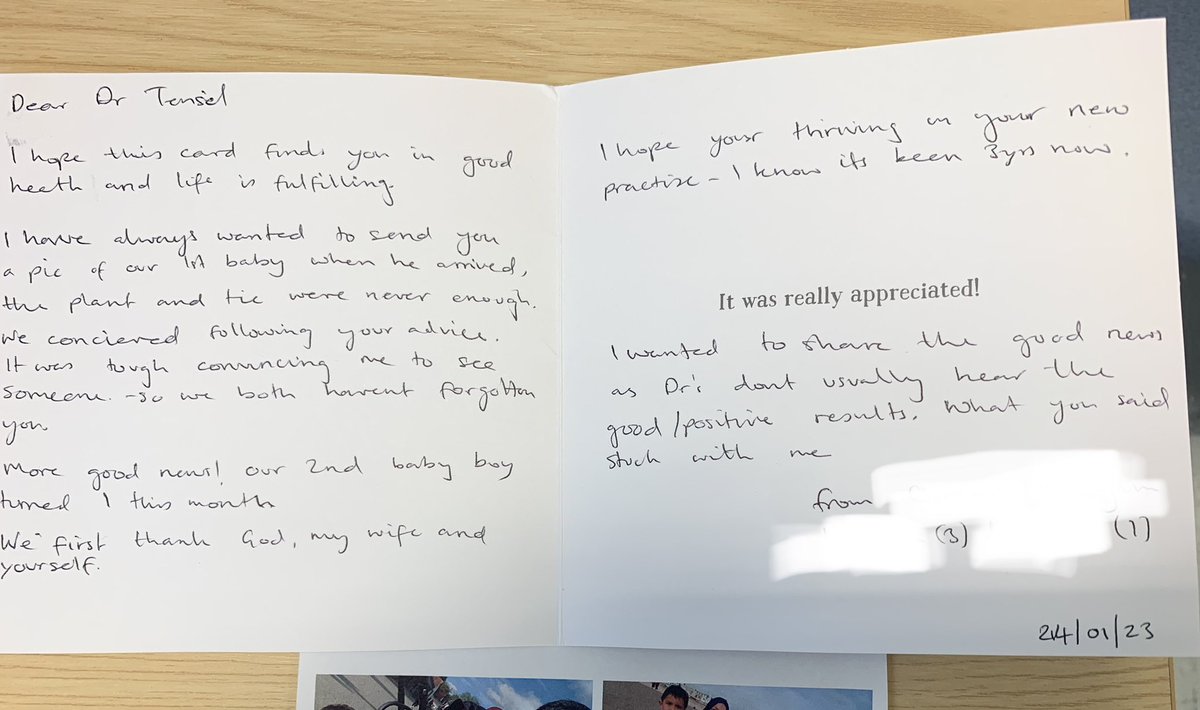 Dear Dr Tensel
I hope this card finds you in good
heath and life is fulfilling.
I have always wanted to send you
a pic of our 1st baby when he arrived,
the plant and tie were never enough.
We concieved following your advice.
It was tough convincing me to see
someone. - so we both havent forgotton
you
More good news! our 2nd baby boy
turned 1 this month
We first thank God, my wife and
yourself.
I hope your thriving in your new
practise - I know its been 3yrs now.
It was really appreciated!
I wanted to share the good news
as Dr's dont usually hear the
good/positive results. What you said
stuck with me
from
(3) (1)
24/01/23